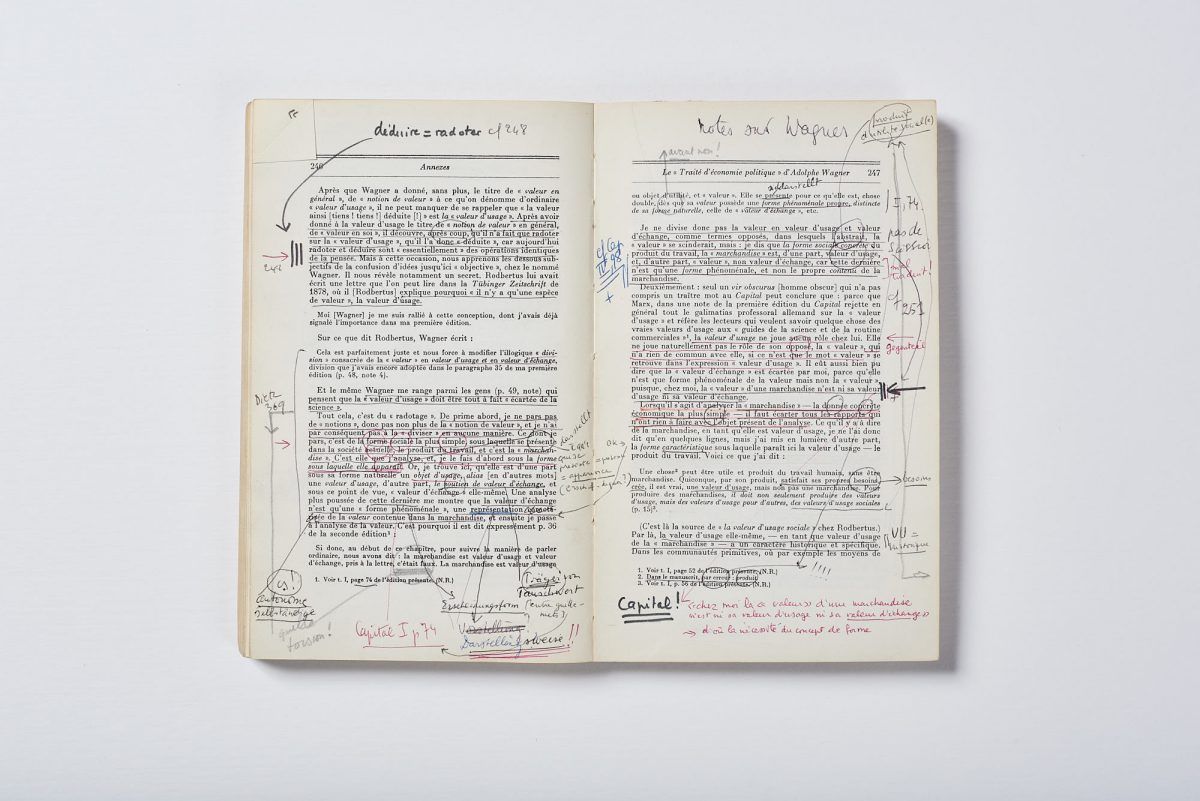 déduire = radoter cf 248
246 Annexes
Après que Wagner a donné, sans plus, le titre de « valeur en
général », de « notion de valeur » à ce qu'on dénomme d'ordinaire
« valeur d'usage », il ne peut manquer de se rappeler que « la valeur
ainsi [tiens ! tiens !] déduite [!] » est la « valeur d'usage ». Après avoir
donné à la valeur d'usage le titre de « notion de valeur » en général,
de « valeur en soi », il découvre, après coup, qu'il n'a fait que radoter
sur la « valeur d'usage », qu'il l'a donc « déduite », car aujourd'hui
radoter et déduire sont « essentiellement » des opérations identiques
de la pensée. Mais à cette occasion, nous apprenons les dessous sub-
jectifs de la confusion d'idées jusqu'ici « objective », chez le nommé
Wagner. Il nous révèle notamment un secret. Rodbertus lui avait
écrit une lettre que l'on peut lire dans la Tübinger Zeitschrift de
1878, où il [Rodbertus] explique pourquoi « il n'y a qu'une espèce
de valeur », la valeur d'usage.
Moi [Wagner] je me suis rallié à cette conception, dont j'avais déjà
signalé l'importance dans ma première édition.
Sur ce que dit Rodbertus, Wagner écrit :
Cela est parfaitement juste et nous force à modifier l'illogique « divi-
sion » consacrée de la « valeur » en valeur d'usage et en valeur d'échange,
division que j'avais encore adoptée dans le paragraphe 35 de ma première
édition (p. 48, note 4).
Et le même Wagner me range parmi les gens (p. 49, note) qui
pensent que la « valeur d'usage » doit être tout à fait « écartée de la
science ».
Tout cela, c'est du « radotage ». De prime abord, je ne pars pas
de « notions », donc pas non plus de la « notion de valeur », et je n'ai
par conséquent pas à la « diviser » en aucune manière. Ce dont je
pars, c'est de la forme sociale la plus simple, sous laquelle se présente
dans la société actuelle, le produit du travail, et c'est la « marchan-
dise ». C'est elle que j'analyse, et, je le fais d'abord sous la forme
sous laquelle elle apparaît. Or, je trouve ici, qu'elle est d'une part
sous sa forme naturelle un objet d'usage, alias [en d'autres mots]
une valeur d'usage, d'autre part, le soutien de valeur d'échange, et
sous ce point de vue, « valeur d'échange » elle-même. Une analyse
plus poussée de cette dernière me montre que la valeur d'échange
n'est qu'une « forme phénoménale », une représentation
de la valeur contenue dans la marchandise, et ensuite je passe
à l'analyse de la valeur. C'est pourquoi il est dit expressément p. 36
de la seconde édition¹
Si donc, au début de ce chapitre, pour suivre la manière de parler
ordinaire, nous avons dit : la marchandise est valeur d'usage et valeur
d'échange, pris à la lettre, c'était faux. La marchandise est valeur d'usage
1. Voir t. I, page 74 de l'édition présente. (N.R.)
246
DIETZ
369
darstellt
Träger von
Tauschwert
Erscheinungsform (entre guille-
mets)
Capital I p 74
Vorstellung
Darstellungsweise !!
Notes sur Wagner
avant non !
produit
Le « Traité d'économie politique » d'Adolphe Wagner 247
darstellt
ou objet d'utilité, et « valeur ». Elle se présente pour ce qu'elle est, chose
double, dès que sa valeur possède une forme phénoménale propre, distincte
de sa forme naturelle, celle de « valeur d'échange », etc.
Je ne divise donc pas la valeur en valeur d'usage et valeur
d'échange, comme termes opposés, dans lesquels l'abstrait, la
« valeur » se scinderait, mais : je dis que la forme sociale concrète du
produit du travail, la « marchandise » est, d'une part, valeur d'usage,
et, d'autre part, « valeur », non valeur d'échange, car cette dernière
n'est qu'une forme phénoménale, et non le propre contenu de la
marchandise.
Deuxièmement : seul un vir obscurus [homme obscur] qui n'a pas
compris un traître mot au Capital peut conclure que : parce que
Marx, dans une note de la première édition du Capital rejette en
général tout le galimatias professoral allemand sur la « valeur
d'usage » et réfère les lecteurs qui veulent savoir quelque chose des
vraies valeurs d'usage aux « guides de la science et de la routine
commerciales »¹, la valeur d'usage ne joue aucun rôle chez lui. Elle
ne joue naturellement pas le rôle de son opposé, la « valeur », qui
n'a rien de commun avec elle, si ce n'est que le mot « valeur » se
retrouve dans l'expression « valeur d'usage ». Il eût aussi bien pu
dire que la « valeur d'échange » est écartée par moi, parce qu'elle
n'est que forme phénoménale de la valeur mais non la « valeur »
puisque, chez moi, la « valeur » d'une marchandise n'est ni sa valeur
d'usage ni sa valeur d'échange.
Lorsqu'il s'agit d'analyser la « marchandise » — la donnée concrète
économique la plus simple — il faut écarter tous les rapports qui
n'ont rien à faire avec l'objet présent de l'analyse. Ce qu'il y a à dire
de la marchandise, en tant qu'elle est valeur d'usage, je ne l'ai donc
dit qu'en quelques lignes, mais j'ai mis en lumière d'autre part,
la forme caractéristique sous laquelle paraît ici la valeur d'usage — le
produit du travail. Voici ce que j'ai dit :
Une chose² peut être utile et produit du travail humain, sans être
marchandise. Quiconque, par son produit, satisfait ses propres besoins,
crée, il est vrai, une valeur d'usage, mais non pas une marchandise. Pour
produire des marchandises, il doit non seulement produire des valeurs
d'usage, mais des valeurs d'usage pour d'autres, des valeurs d'usage sociales
(p. 15)³.
(C'est là la source de « la valeur d'usage sociale » chez Rodbertus.)
Par là, la valeur d'usage elle-même, — en tant que valeur d'usage
de la « marchandise » — a un caractère historique et spécifique.
Dans les communautés primitives, où par exemple les moyens de
1. Voir t. I, page 52 de l'édition présente. (N.R.)
2. Dans le manuscrit, par erreur : produit
3. Voir t. I, p. 56 de l'édition présente. (N.R.)
I, 74
pas de
mal
traduit !
cf
251
besoins
VU =
historique
!!!!
Capital !
chez moi la « valeur » d'une marchandise
n'est ni sa valeur d'usage ni sa valeur d'échange »
→ d'où la nécessité du concept de forme